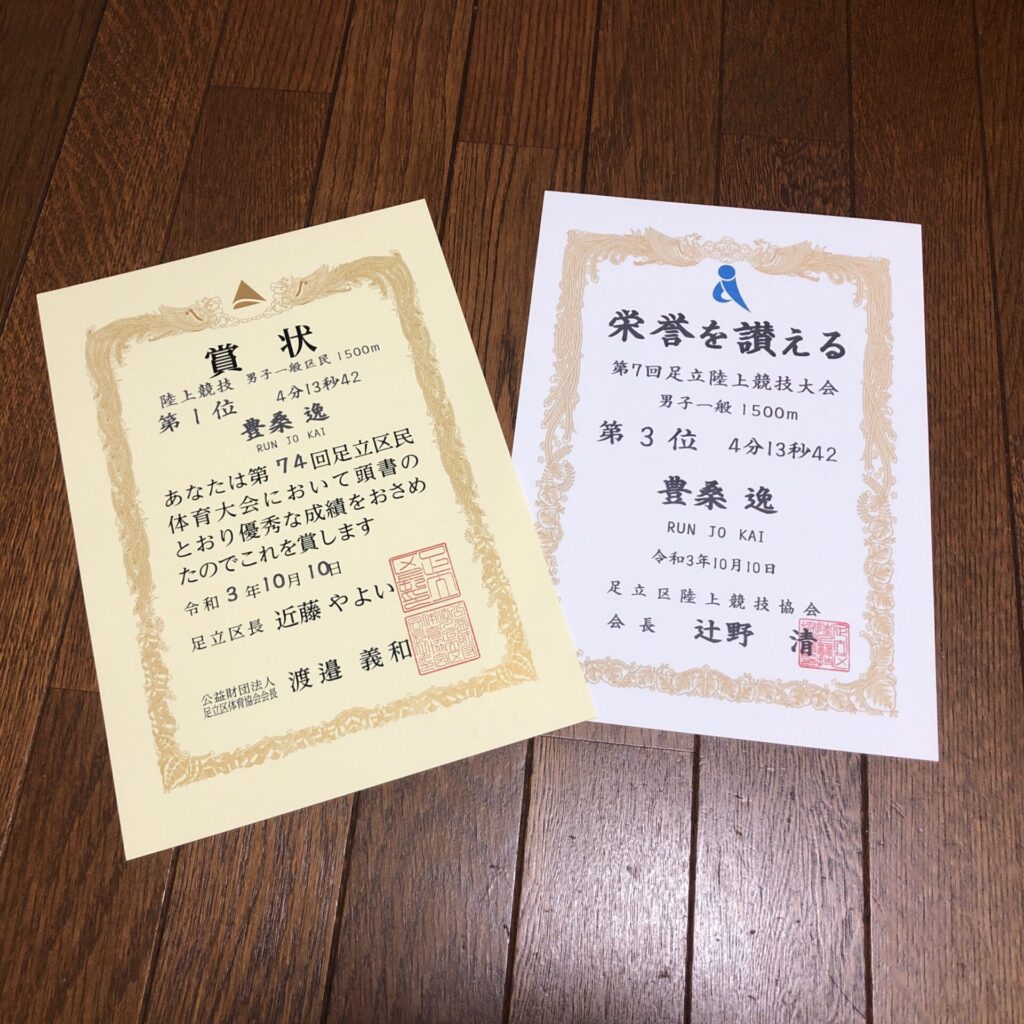 賞状
陸上競技 男子一般区民1500m
第1位 4分13秒42
豊桑 逸
RUN JO KAI
あなたは第74回足立区民
体育大会において頭書の
とおり優秀な成績をおさめ
たのでこれを賞します
令和3年10月10日
足立区長 近藤やよい
公益財団法人
足立区体育協会会長 渡邉義和
栄誉を讃える
第7回足立陸上競技大会
男子一般1500m
第3位 4分13秒42
豊桑 逸
RUN JO KAI
令和3年10月10日
足立区陸上競技協会
会長 辻野 清